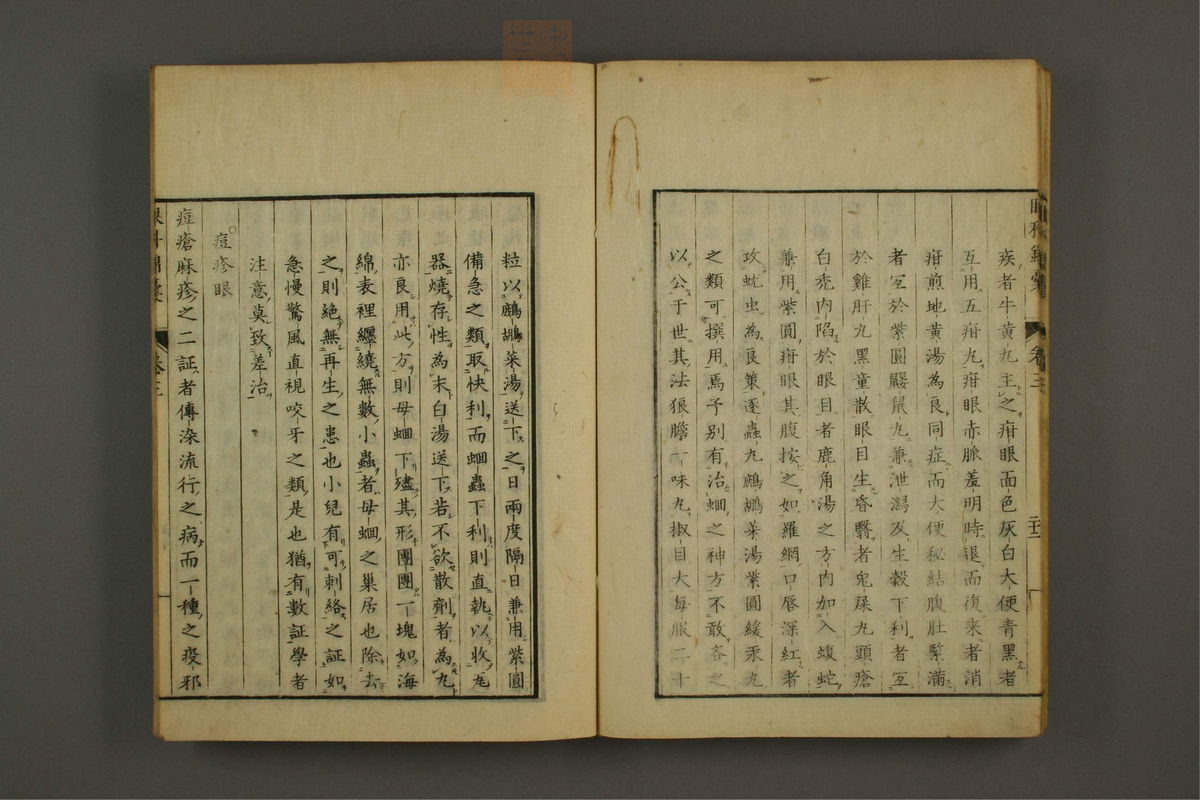 眼科錦囊 卷三
疾者牛黄丸主之疳眼面色灰白大便青黑者
互用五疳丸疳眼赤脈羞明時退而復来者消
疳煎地黄湯為良同症而大便秘結腹肚緊滿
者宐於紫圓鼹鼠丸兼泄瀉及生穀下利者宐
於雞肝丸黑童散眼目生昏翳者兔屎丸頭瘡
白禿内陷於眼目者鹿角湯之方内加入蝮蛇
兼用紫圓疳眼其腹按之如羅網口唇深紅者
攻蚘虫為良策逐蟲丸鷓鴣菜湯紫圓緩汞丸
之類可撰用焉予别有治蛔之神方不敢吝之
以公于世其法狼膽一味丸椒目大每服二十
粒以鷓鴣菜湯送下之日兩度隔日兼用紫圓
備急之類取快利而蛔蟲下利則直執以收瓦
器燒存性為末白湯送下若不欲散劑者為丸
亦良用此方則母蛔下殭其形團團一塊如海
綿表裡纏繞無數小蟲者母蛔之巢居也除去
之則絶無再生之患也小兒有可刺絡之証如
急慢驚風直視咬牙之類是也猶有數証學者
注意莫致差治
痘疹眼
痘瘡麻疹之二証者傳染流行之病而一種之疫邪
眼科錦囊 卷三